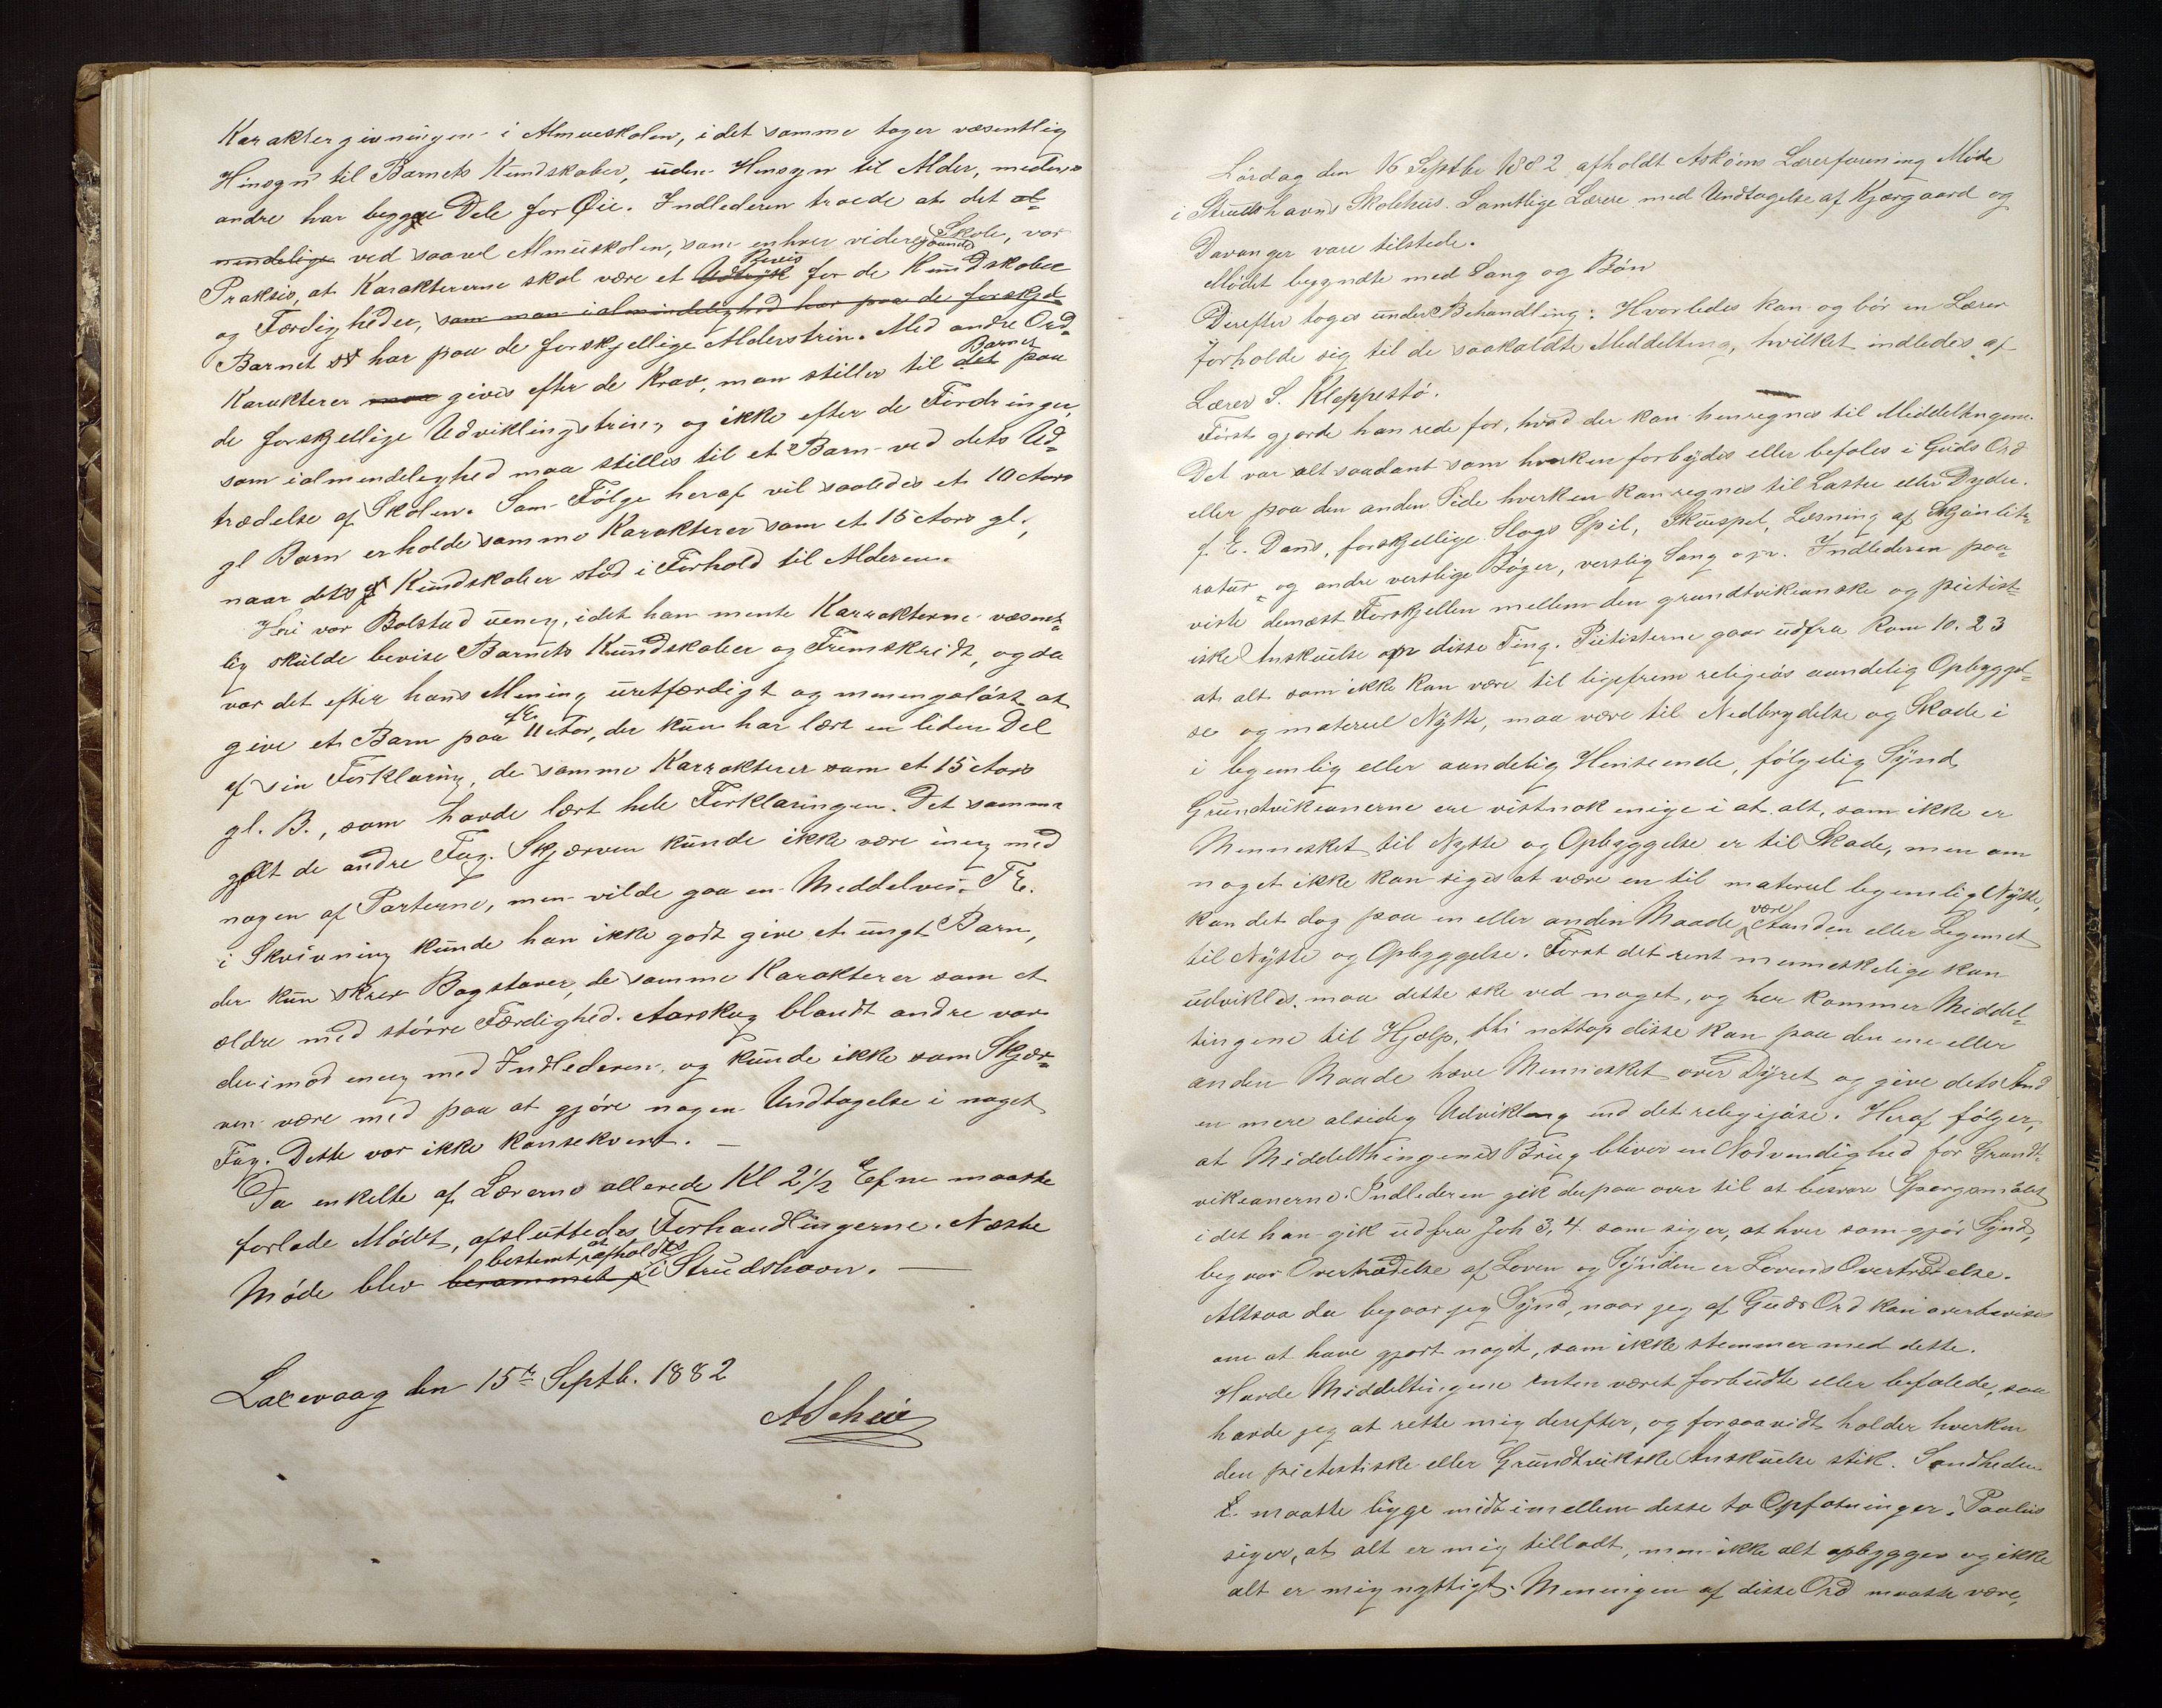 Karaktergivningen i Almueskolen, idet somme tager væsentlig
Hinsyn til Barnets Kundskaber, uden Hensyn til Alder, medens
andre har begge Dele for Øie. Indlederen troede at det al-
mindelige ved saavel Almuskolen, som enhver videregaaende Skole, var
Praksis, at Karaktererne skal være et Udtryk Bevis for de Kundskaber
og Færdigheder, som man i almindelighed har paa de forskjel-
Barnet har paa de forskjellige Alderstrin. Med andre Ord.
Karakterer maa gives efter de Krav, man stiller til det Barnet paa
de forskjellige Udviklingstrin, og ikke efter de Fordringer,
som ialmendeleghed maa stilles til et Barn ved dets Ud-
trædelse af Skolen. Som Følge heraf vil saaledes et 10 Aars
gl Barn erholde samme Karakterer som et 15 Aars gl.,
naar dets Kundskaber stod i Forhold til Alderen.
Heri var Bolstad ueneg, idet han mente Karrakterne væsent-
lig skulde bevise Barnets Kundskaber og Fremskridt, og da
var det efter hans Mening uretfærdigt og meningsløst at
give et Barn paa f.E. 11 Aar, der kun har lært en liden Del
af sin Forklaring, de samme Karrakterer som et 15 Aars
gl. B., som havde lært hele Forklaringen. Det samme
gjalt de andre Fag. Skjerven kunde ikke være ineg med
nogen af Parterne, men vilde gaa en Meddelvei. F.E.
i Skrivning kunde han ikke godt give et ungt Barn,
der kun skrev Bogstaver, de samme Karakterer som et
ældre med större Færdighed. Aarskog blandt andre var
derimod eneg med Indlederen, og kunde ikke som Skjer-
ven være med paa at gjøre nogen Undtagelse i noget
Fag. Dette var ikke konsekvent. —
Da enkelte af Lærerne allerede Kl 2½ Efm maatte
forlade Mødet, afsluttedes Forhandlingerne. Næste
Møde blev berammet bestemt at afholdes i Strudshavn. —
Laxevaag den 15de Septb. 1882
ASchei
Lördag den 16 Septbr 1882 afholdt Asköens Lærerforening Möde
i Strudshavns Skolehus. Samtlige Lærere med Undtagelse af Kjærgaard og
Davanger vare tilstede.
Mödet begyndte med Sang og Bön
Derefter toges under Behandling: Hvorledes kan og bör en Lærer
forholde sig til de saakaldte Meddelting, hvilket indledes af
Lærer S. Kleppestö.
Först gjorde han rede for, hvad der kan henregnes til Middeltingene.
Det var alt saadant som hverken forbydes eller befales i Guds Ord
eller paa den anden Side hverken kan regnes til Laster eller Dyder.
f. E. Dans, forskjellige Slags Spil, Skuespil, Læsning af Skjönlit-
ratur- og andre verslige Böger, verslig Sang o.s.v. Indlederen paa-
viste dernæst Forskjellen mellem den grundtvikianske og pietist-
iske Anskuelse om disse Ting. Pietisterne gaar udfra Rom 10. 23
at alt som ikke kan være til ligefrem religiös aandelig Opbyggel-
se og materiel Nytte, maa være til Nedbrydelse og Skade i
i legemlig eller aandelig Henseende, fölgelig Synd,
Grundtvikeanerne ere vistnok enige i at alt, som ikke er
Mennesket til Nytte og Opbyggelse er til Skade, men om
noget ikke kan siges at være en til materiel legemlig Nytte,
kan det dog paa en eller anden Maade være Aanden eller Legemet
til Nytte og Opbyggelse. Forst det rent menneskelige kan
udvikles, maa dette ske ved noget, og her kommer Middel-
tingene til Hjælp, thi nettop disse kan paa den ene eller
anden Maade hæve Mennesket over Dyret og give dets Aand
en mere alsidig Udvikling end det religiöse. Heraf fölger,
at Middelthingenes Brug bliver en Nødvendighed for Grundt-
vikeanerne. Indlederen gik derpaa over til at besvare Spørgsmålet
idet han gik udfra Joh 3, 4. som siger, at hver som gjör Synd,
begaar Overtrædelse af Loven og Synden er Lovens Overtrædelse.
Altsaa da begaar jeg Synd, naar jeg af Guds Ord kan overbevises
om at have gjort noget, som ikke stemmer med dette.
Havde Middeltingene enten været forbudte eller befalede, saa
havde jeg at rette mig derefter, og forsaavidt holder hverken
den pietistiske eller Grundtvikske Anskuelse stik. Sandheden
maatte ligge midt imellem desse to Opfatninger. Paulus
siger, at alt er mig tilladt, men ikke alt opbygger og ikke
alt er mig nyttigt. Meningen af disse Ord maatte være,